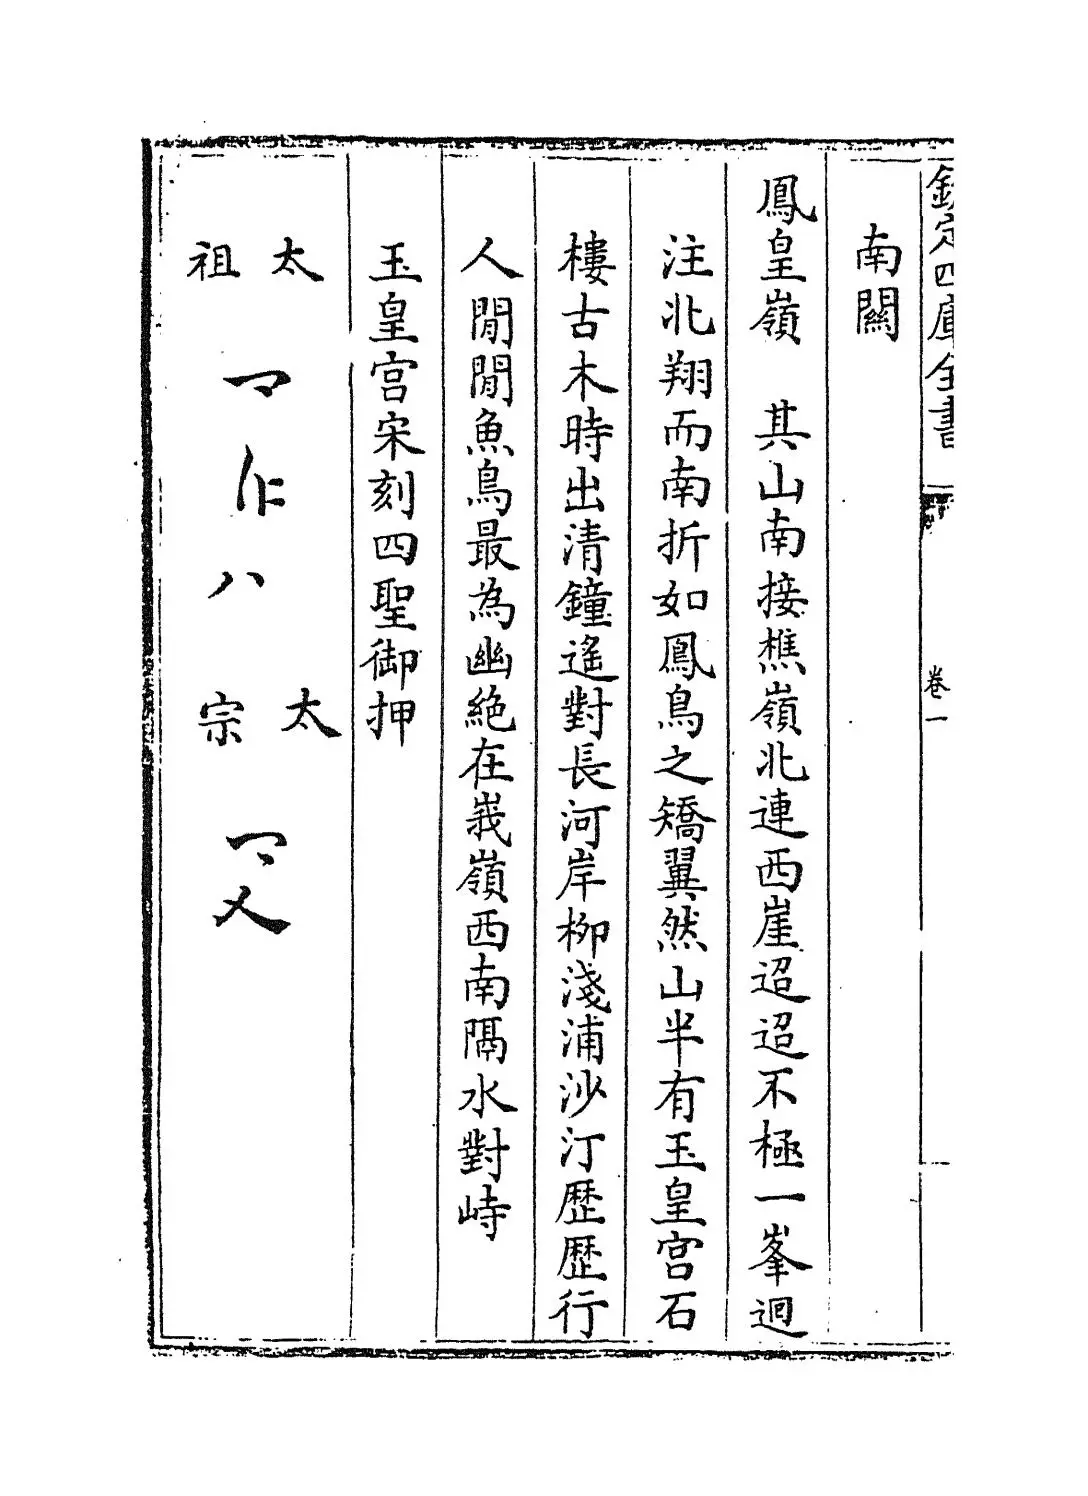 欽定四庫全書
卷一
南關
鳳皇嶺　其山南接樵嶺北連西崖迢迢不極一峯迴
注北翔而南折如鳳鳥之矯翼然山半有玉皇宮石
樓古木時出清鐘遙對長河岸柳淺浦沙汀歴歴行
人閒閒魚鳥最為幽絶在峩嶺西南隔水對峙
玉皇宮宋刻四聖御押
太祖
太宗